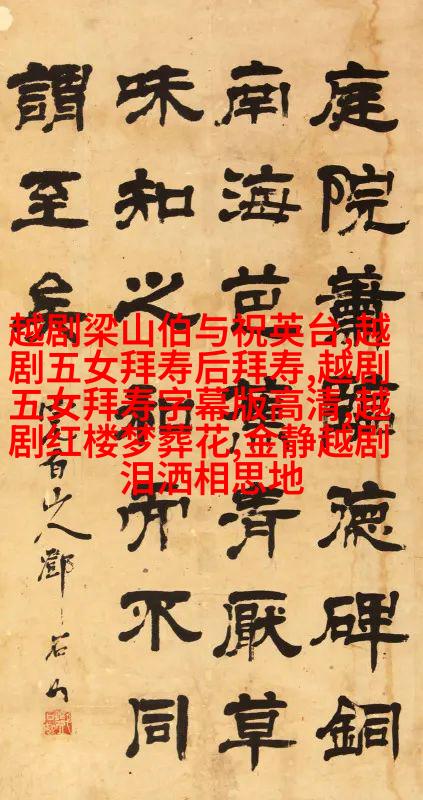 庭院蕭德碑銅
南海芭厭草
味知之所不同
謂至矣
完白山人鄧石如
越剧梁山伯与祝英台,越
剧五女拜寿后拜寿,越剧
五女拜寿字幕版高清,越
剧红楼梦葬花,金静越剧
泪洒相思地